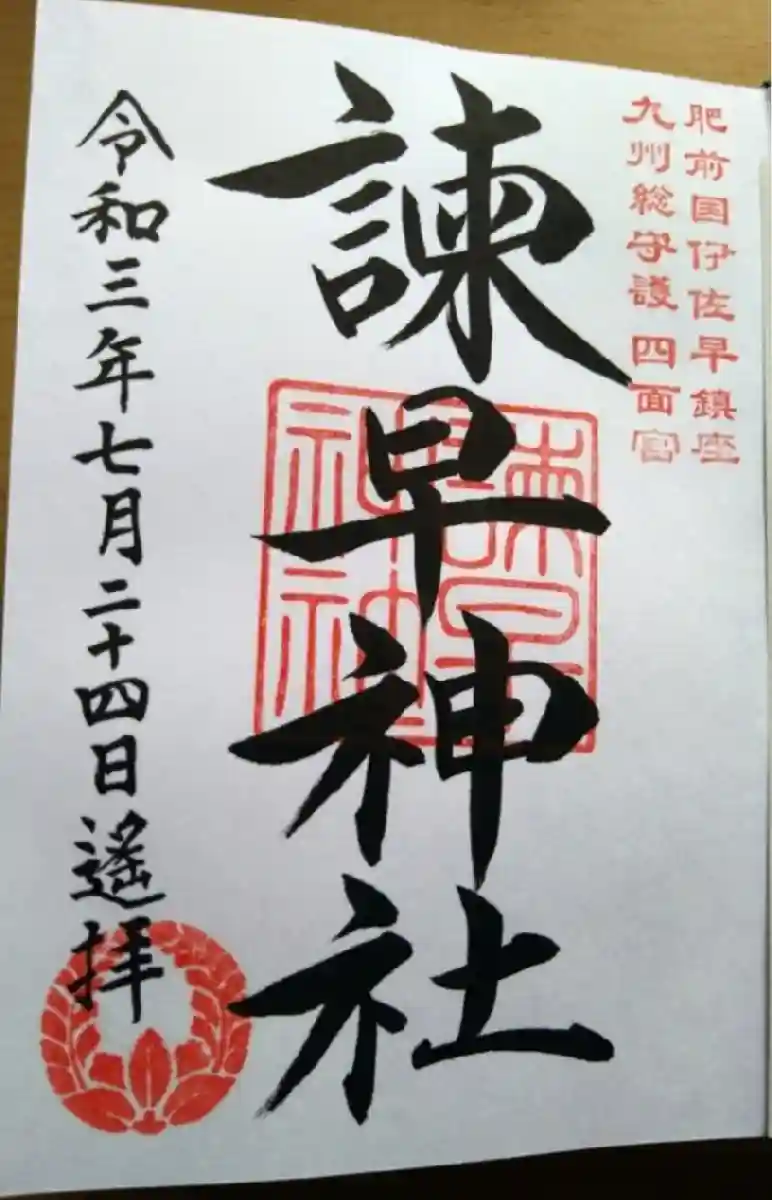 肥前国伊佐早鎮座
九州総守護 四面宮
諫早神社
諫早
神社
令和三年七月二十四日遙拝